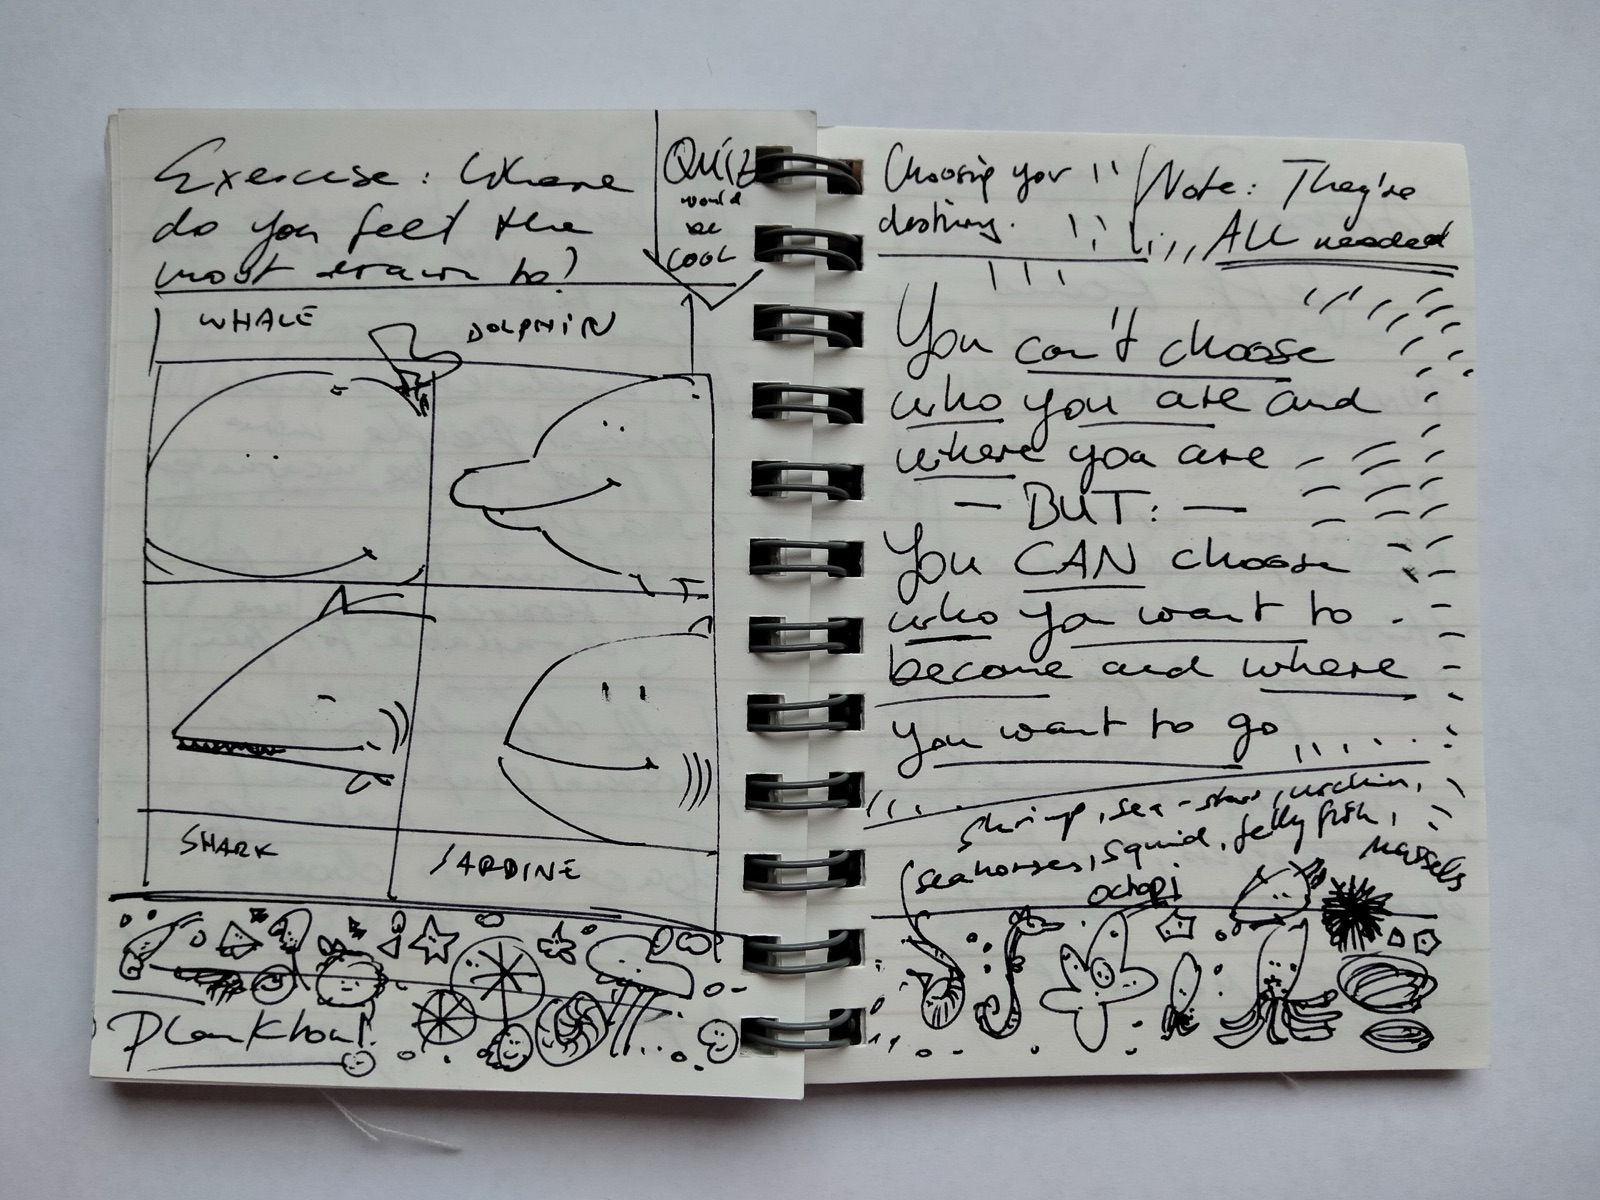 Exercise: Where
do you feel the
most drawn to?
QUIZ
would
be
COOL
WHALE
DOLPHIN
SHARK
SARDINE
Plankton!
Choosing your
destiny.
Note: They're
ALL needed
You can't choose
who you are and
where you are
— BUT: —
You CAN choose
who you want to
become and where
you want to go
shrimp, sea-stars, urchin,
seahorses, squid, jelly fish,
mussels
octopi